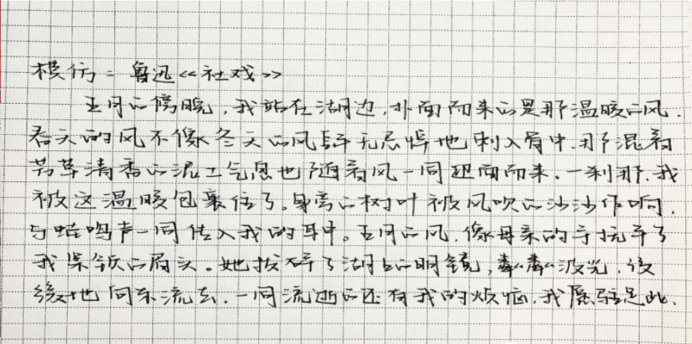 模仿：鲁迅《社戏》
五月的傍晚，我站在湖边，扑面而来的是那温暖的风．
春天的风不像冬天的风肆无忌惮地刺入骨中．那混着
芳草清香的泥土气息也随着风一同迎面而来．一刹那．我
被这温暖包裹住了。身旁的树叶被风吹的沙沙作响，
与蛙鸣声一同传入我的耳中。五月的风．像母亲的手抚平了
我紧皱的眉头。她拨碎了湖上的明镜，粼粼波光．缓
缓地向东流去．一同流逝的还有我的烦恼．我愿驻足此．